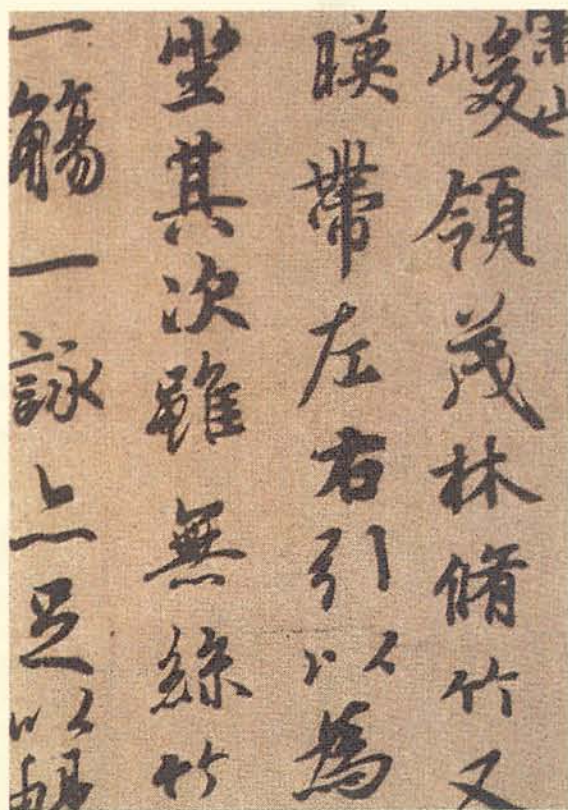 崇山
峻領茂林脩竹又
暎帶左右引以為
坐其次雖無絲竹
一觴一詠亦足以暢